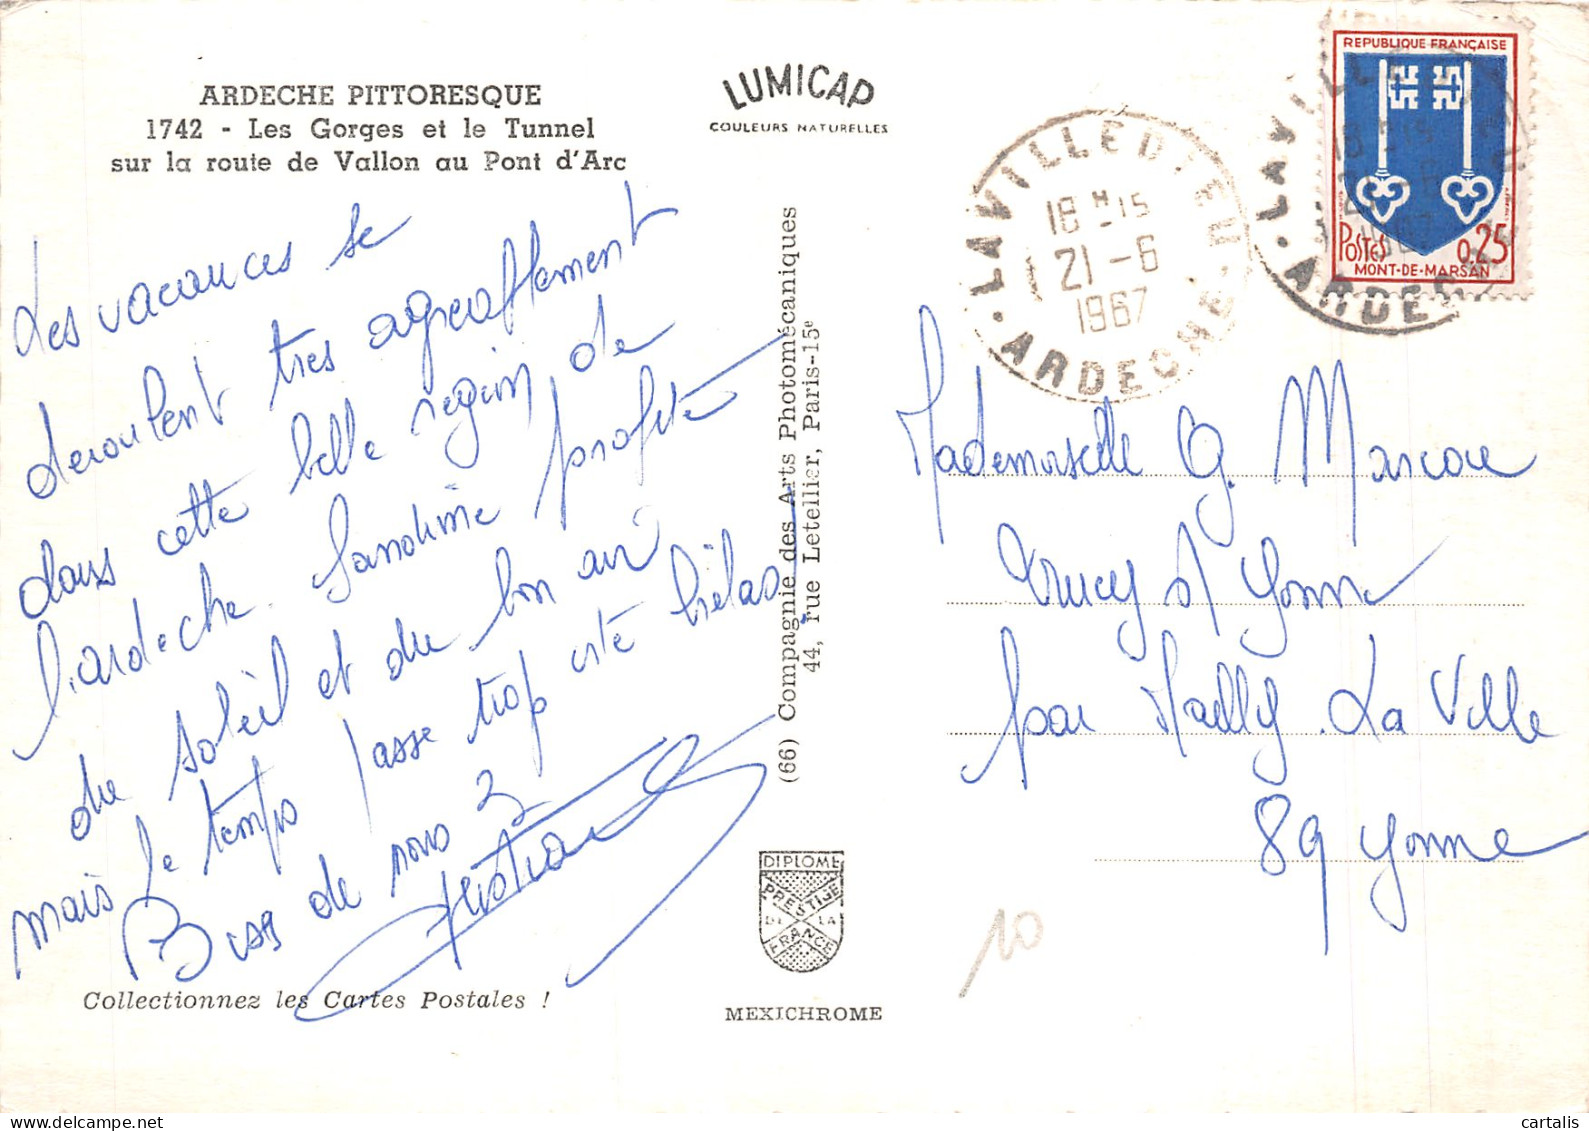 ARDECHE PITTORESQUE
1742 - Les Gorges et le Tunnel
sur la route de Vallon au Pont d'Arc
LUMICAP
COULEURS NATURELLES
Les vacances se
deroulent très agreablement
dans cette belle region de
l'ardeche. Sandrine profite
du soleil et du bon air
mais le temps passe trop vite hélas!
Bises de nous 3
Collectionnez les Cartes Postales !
(66) Compagnie des Arts Photomécaniques
44, rue Letellier, Paris-15e
DIPLOME
PRESTIJE
DE LA
FRANCE
MEXICHROME
LAVILLEDIEU
18 H 15
21-6
1967
ARDECHE
REPUBLIQUE FRANÇAISE
POSTES
0,25
MONT-DE-MARSAN
LAVILLEDIEU
18 H 15
21-6
1967
ARDECHE
Mademoiselle G. Marcoue
Trucy s/ Yonne
par Mailly. La Ville
89 Yonne
10
cartalis